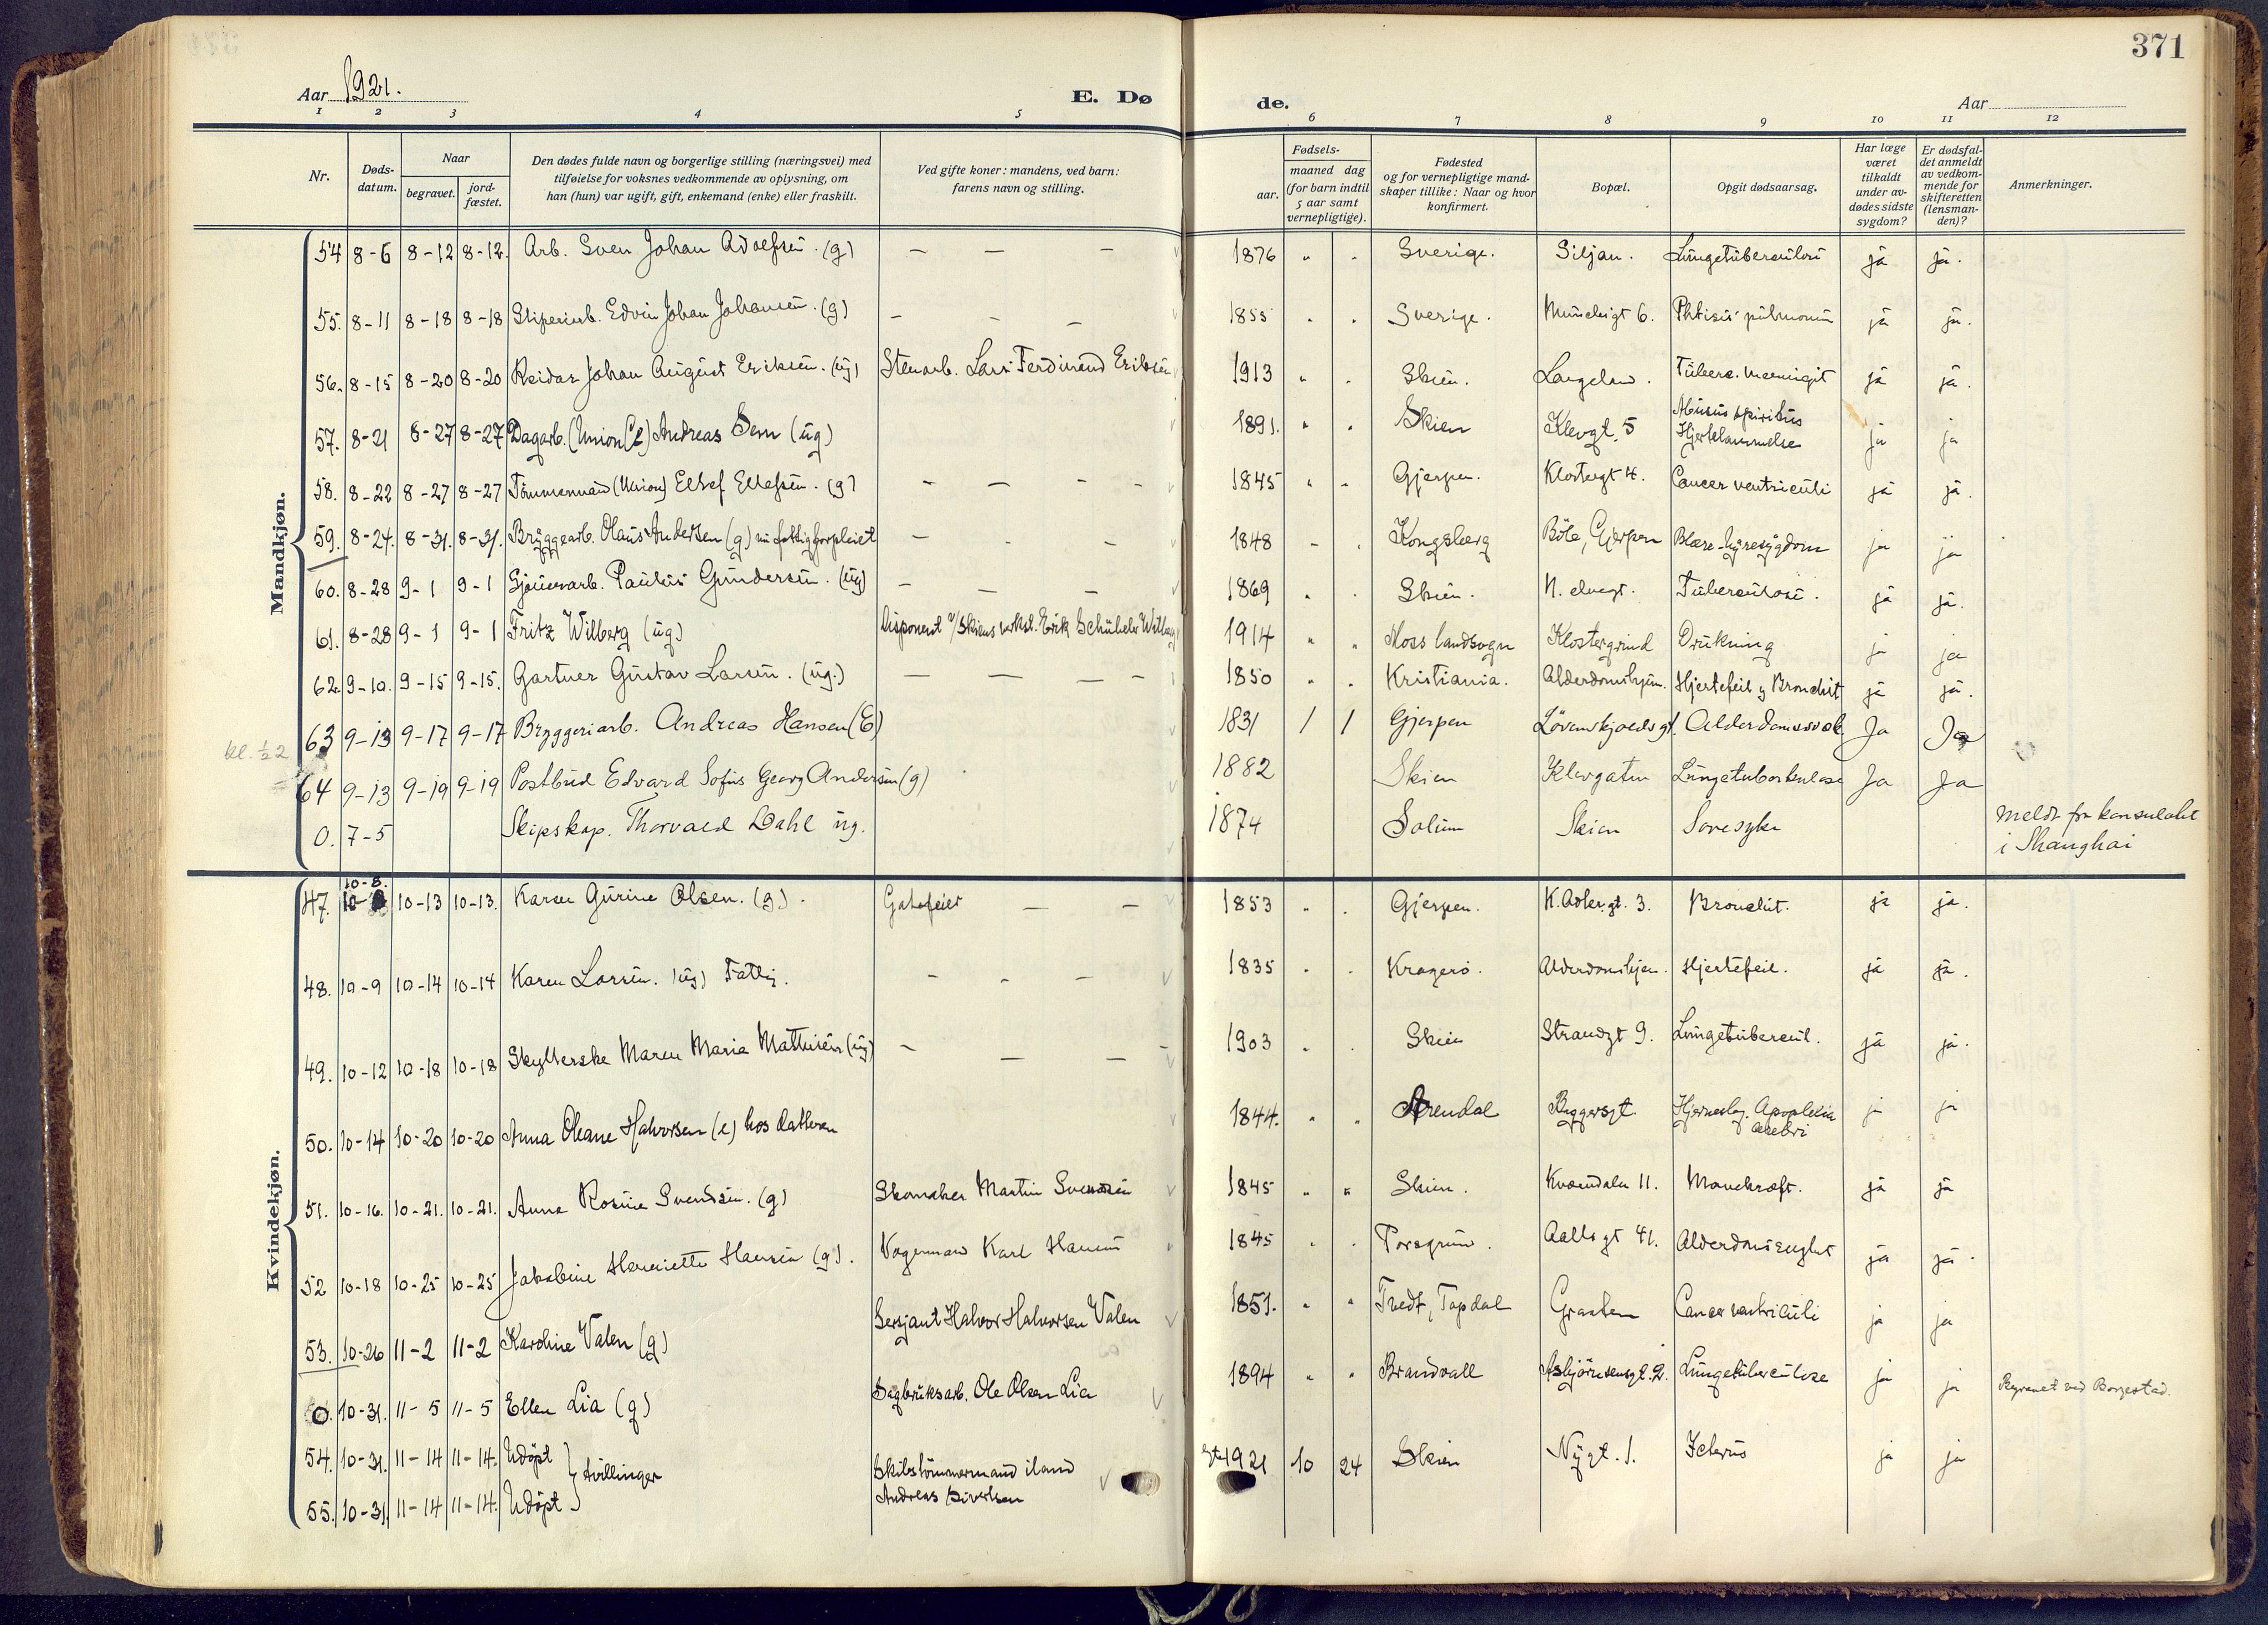 371
Aar 1921.
E. Dø
de.
Aar
1 2 3 4 5 6 7 8 9 10 11 12
Nr.
Døds-
datum.
Naar
begravet.
jord-
fæstet.
Den dødes fulde navn og borgerlige stilling (næringsvei) med
tilføielse for voksnes vedkommende av oplysning, om
han (hun) var ugift, gift, enkemand (enke) eller fraskilt.
Ved gifte koner: mandens, ved barn:
farens navn og stilling.
Fødsels-
aar.
maaned dag
(for barn indtil
5 aar samt
vernepligtige).
Fødested
og for vernepligtige mand-
skaper tillike: Naar og hvor
konfirmert.
Bopæl.
Opgit dødsaarsag.
Har læge
været
tilkaldt
under av-
dødes sidste
sygdom?
Er dødsfal-
det anmeldt
av vedkom-
mende for
skifteretten
(lensman-
den)?
Anmerkninger.
Mandkjøn.
54 8-6 8-12 8-12. Arb. Sven Johan Adolfsen. (g) — — — 1876 " . Sverige. Siljan. Lungetuberculose ja ja.
55. 8-11 8-18 8-18 Sliperiarb. Edvin Johan Johansen. (g) — — — 1855 . . Sverige. 6. Phtisis pulmonum ja ja.
56. 8-15 8-20 8-20 Reidar Johan August Eriksen. (ug) Stenarb. Lars Ferdinand Eriksen 1913 " . Skien. Langeland. Tuberc. meningit ja ja.
57. 8-21 8-27 8-27 Dagarb. (Union Co) Andreas Sem (ug) 1891. " " Skien Klevgt. 5 Abusus spiritus
Hjertelammelse ja ja
58. 8-22 8-27 8-27 Tømmermand (Union) Ellef Ellefsen. (g) — — — — 1845 " . Gjerpen. Klostergt 4. Cancer ventriculi ja ja.
59. 8-24. 8-31. 8-31. Bryggearb. Olaus Andersen (g) nu fattigforpleiet — . — 1848 - . Kongsberg Böle, Gjerpen Blære-nyresygdom ja ja
60. 8-28 9-1 9-1 Sjauerarb. Paulus Gundersen. (ug) — — — 1869 . . Skien. N. elvegt. Tuberculose. ja ja.
61. 8-28 9-1 9-1 Fritz Wilberg (ug) Disponent v/Skiens verkst. Erik Schübeler Wilberg 1914 " " Moss landsogn Klostergrind Drukning ja ja
62. 9-10. 9-15 9-15. Gartner Gustav Larsen. (ug.) — — — — 1850 . . Kristiania. Alderdomshjem. Hjertefeil og Bronchit ja ja.
kl. ½2
63 9-13 9-17 9-17 Bryggeriarb. Andreas Hansen (E) 1831 / / Gjerpen Løvenskjoldsgt. Alderdomssvak Ja Ja
64 9-13 9-19 9-19 Postbud Edvard Sofus Georg Andersen (g) 1882 Skien Klevgaten Lungetuberkulose Ja Ja
0. 7-5 Skipskap. Thorvald Dahl ug. 1874 Solum Skien Sovesyke meldt fra konsulatet
i Shanghai
Kvindekjøn.
10-8.
47. 10-13 10-13. Karen Gurine Olsen. (g). Gatefeier — — 1853 " . Gjerpen. K. Adlersgt. 3. Bronchit. ja ja.
48. 10-9 10-14 10-14 Karen Larsen. (ug) Fattig. — - — 1835 . . Kragerö. Alderdomshjem. Hjertefeil. ja ja.
49. 10-12 10-18 10-18 Maren Maria (ug) — — — 1903 . . Skien Strandgt 9. Lungetubercul. ja ja.
50. 10-14 10-20 10-20 Anna Oleane Halvorsen (e) hos datteren 1844. . . Arendal Byggersgt. Hjerneslag. Apoplexia
cerebri ja ja
51. 10-16. 10-21. 10-21. Anna Rosine Svendsen. (g) Skomaker Martin Svendsen 1845 " " Skien. Kværndalen 11. Mavekræft. ja ja
52 10-18 10-25 10-25 Jakobine Henriette Hansen (g). Vognmand Karl Hansen 1845 . . Porsgrund. Aallsgt 41. ja ja.
53. 10-26 11-2 11-2 Karoline Valen (g) Sersjant Halvor Halvorsen Valen 1851. " " Tvedt, Topdal Graaten Cancer ventriculi ja ja
0. 10-31. 11-5 11-5 Ellen Lia (g) Sagbruksarb. Ole Olsen Lia 1894 " " Brandvall Asbjörnsensgt. 2. Lungetuberculose ja ja Begravet ved Borgestad.
54. 10-31. 11-14 11-14. Udöpt } tvillinger Skibstömmermand iland
Andreas Sivertsen 1921 10 24 Skien Nygt. 1. Icterus ja ja
55. 10-31. 11-14 11-14. Udöpt